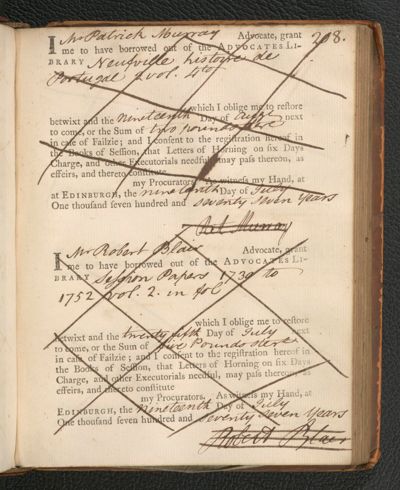 208.
I Mr Patrick Murray Advocate, grant
me to have borrowed out of the ADVOCATES LI-
BRARY Neufville histoire de
Portugal 2 vol. 4to
which I oblige me to reſtore
betwixt and the nineteenth Day of next
to come, or the Sum of two pounds
in caſe of Failzie; and I conſent to the regiſtration hereof in
the Books of Seſſion, that Letters of Horning on ſix Days
Charge, and other Executorials needful may paſs thereon, as
effeirs, and thereto conſtitute
my Procurators. As witneſs my Hand, at
at EDINBURGH, the nineteenth Day of July
One thouſand ſeven hundred and seventy seven years
Pat Murray
I Mr Robert Blair Advocate, grant
me to have borrowed out of the ADVOCATES LI-
BRARY Session Papers 1739 to
1752 vol. 2. in fol
which I oblige me to reſtore
betwixt and the twenty fifth Day of July next
to come, or the Sum of five Pounds sterl
in caſe of Failzie; and I conſent to the regiſtration hereof in
the Books of Seſſion, that Letters of Horning on ſix Days
Charge, and other Executorials needful, may paſs thereon, as
effeirs, and thereto conſtitute
my Procurators. As witneſs my Hand, at
EDINBURGH, the nineteenth Day of July
One thouſand ſeven hundred and seventy seven years
Robert Blair